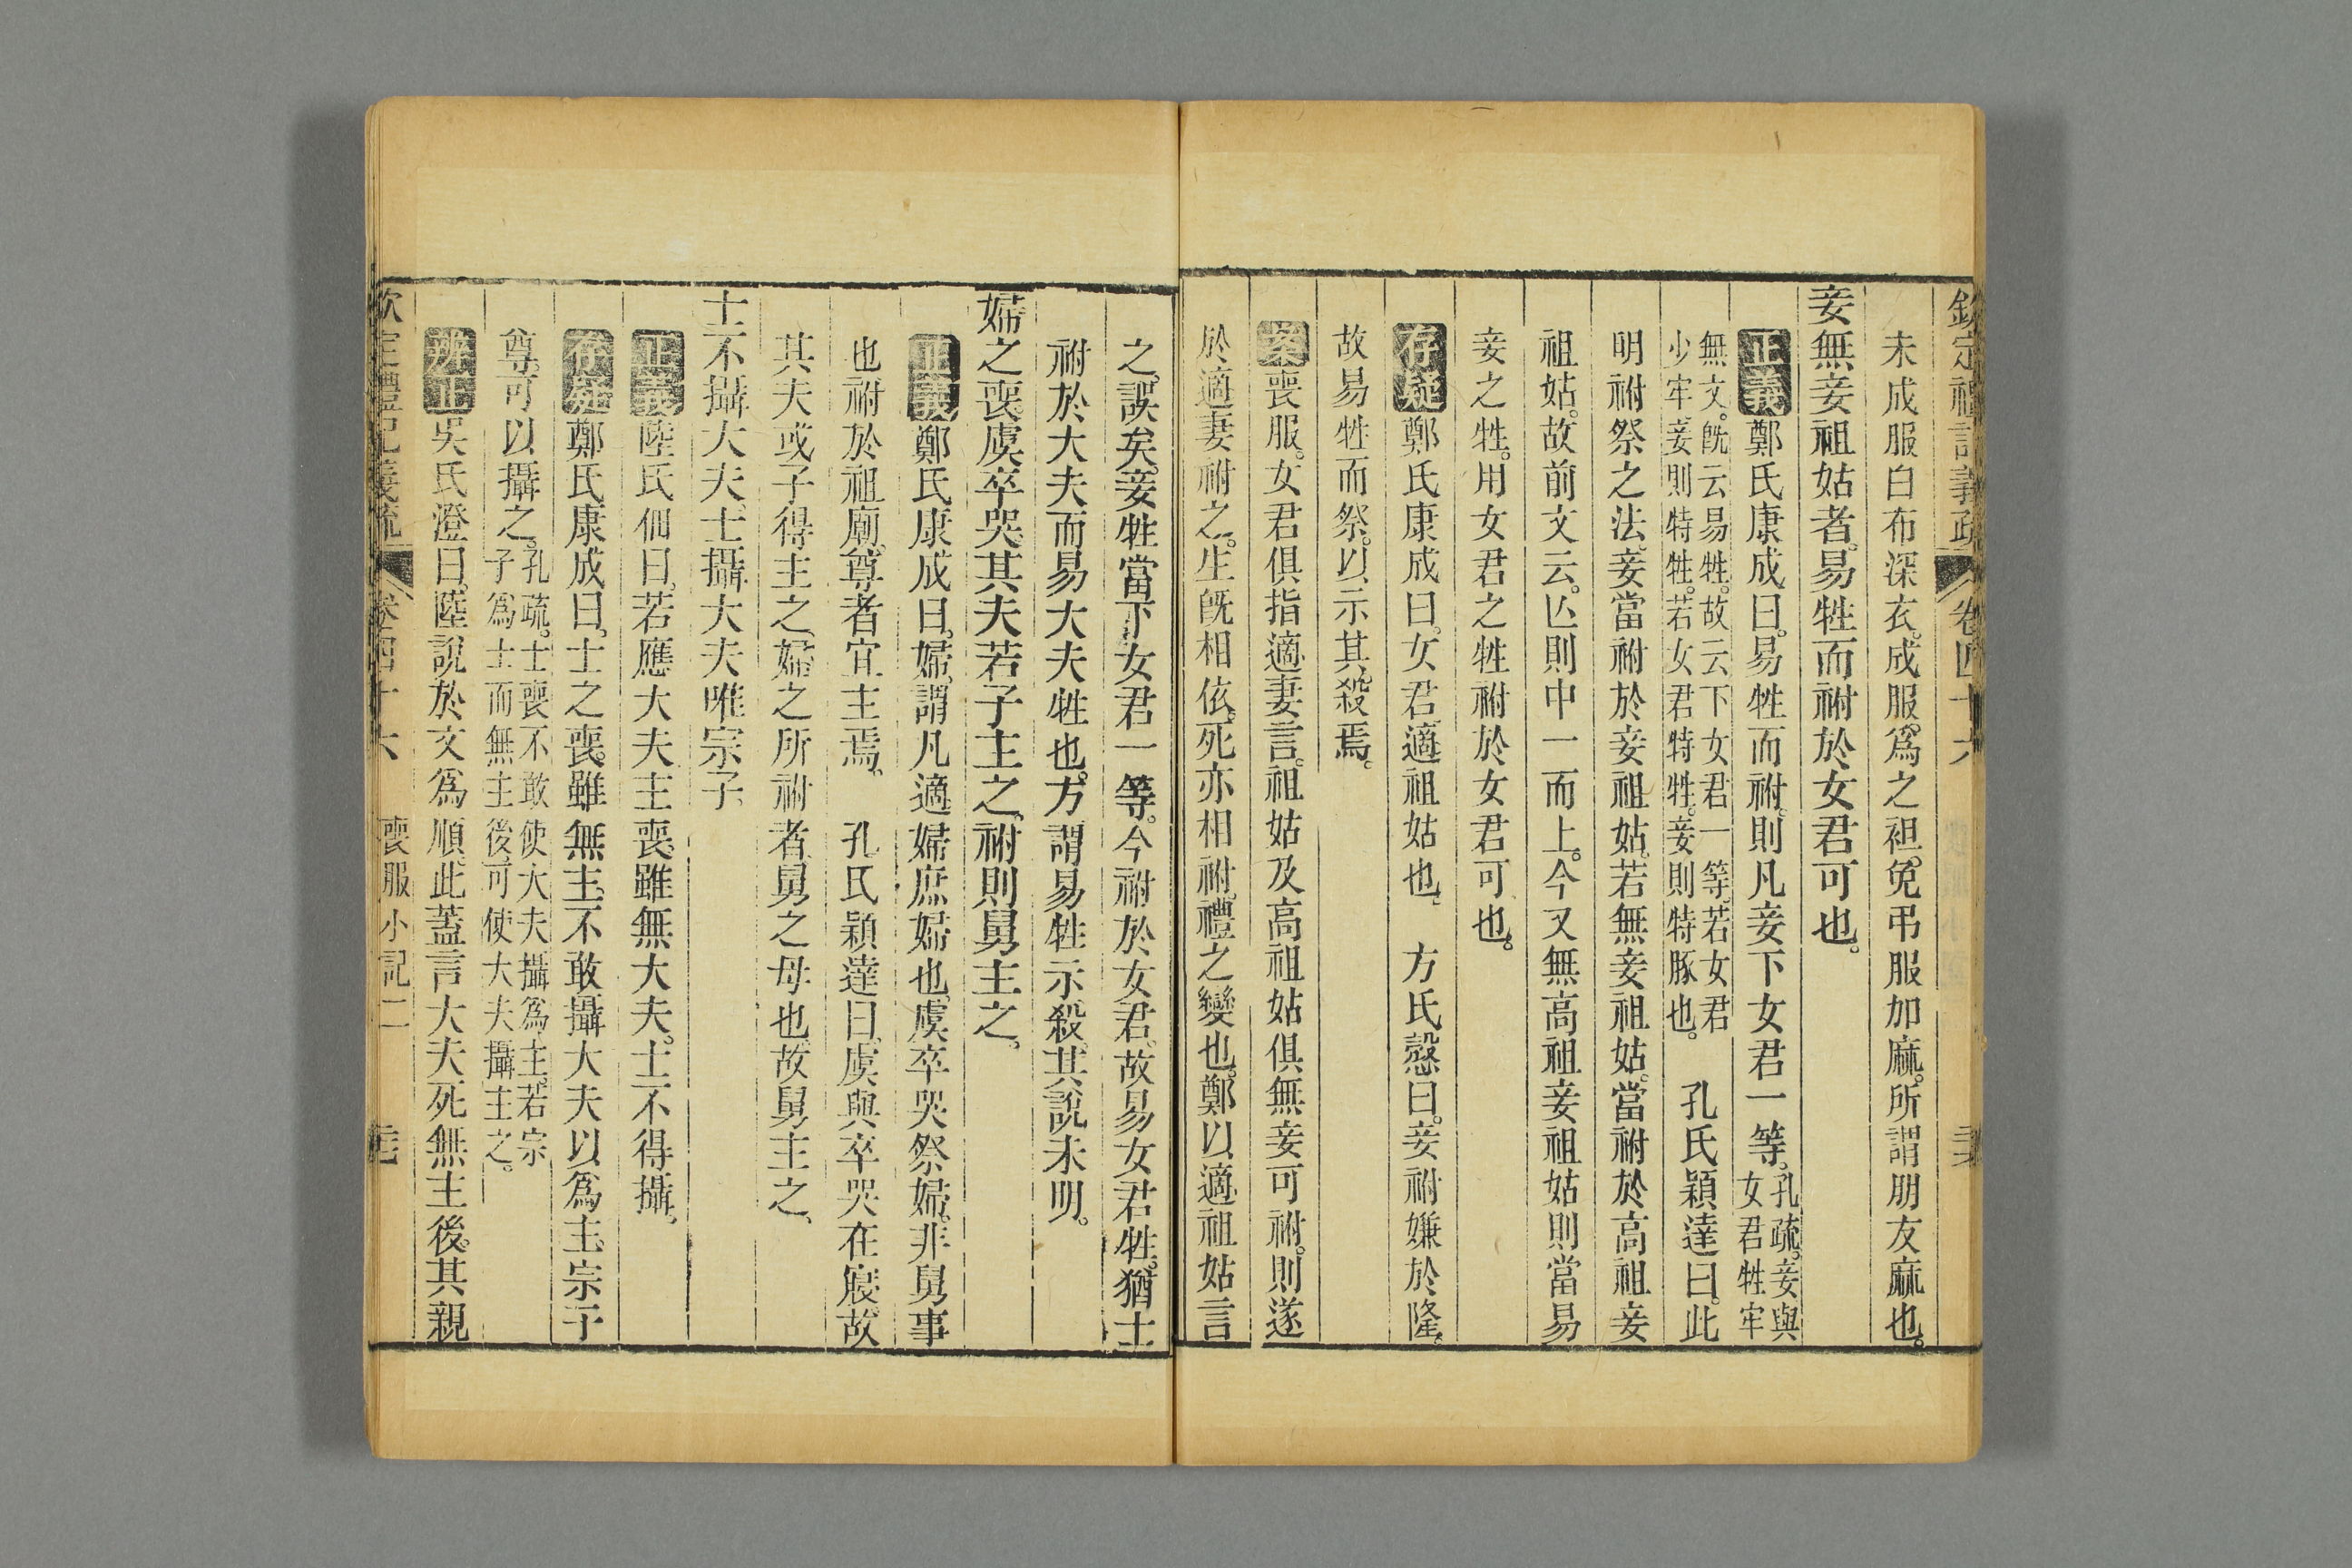 欽定禮記義疏 卷四十六
未成服白布深衣。成服。爲之袒免。弔服加麻。所謂朋友麻也。
妾無妾祖姑者。易牲而祔於女君可也。
正義鄭氏康成曰。易牲而祔。則凡妾下女君一等。孔疏。妾與女君牲牢
無文。旣云易牲。故云下女君一等。若女君少牢。妾則特牲。若女君特牲。妾則特豚也。 孔氏穎達曰。此
明祔祭之法。妾當祔於妾祖姑。若無妾祖姑。當祔於高祖妾
祖姑。故前文云。亾則中一而上。今又無高祖妾祖姑則當易
妾之牲。用女君之牲祔於女君可也。
存疑鄭氏康成曰。女君。適祖姑也。 方氏慤曰。妾祔嫌於隆。
故易牲而祭。以示其殺焉。
案喪服。女君俱指適妻言。祖姑及高祖姑俱無妾可祔。則遂
於適妻祔之。生旣相依。死亦相祔。禮之變也。鄭以適祖姑言
之。誤矣。妾牲當下女君一等。今祔於女君。故易女君牲。猶士
祔於大夫而易大夫牲也。方謂易牲示殺。其說未明。
婦之喪。虞卒哭。其夫若子主之。祔則舅主之。
正義鄭氏康成曰。婦。謂凡適婦庶婦也。虞卒哭祭婦。非舅事
也。祔於祖廟。尊者宜主焉。 孔氏穎達曰。虞與卒哭在寢。故
其夫或子得主之。婦之所祔者。舅之母也。故舅主之。
士不攝大夫。士攝大夫唯宗子。
正義陸氏佃曰。若應大夫主喪。雖無大夫。士不得攝。
存疑鄭氏康成曰。士之喪。雖無主。不敢攝大夫以爲主。宗子
尊。可以攝之。孔疏。士喪不敢使大夫攝爲主。若宗子爲士而無主後。可使大夫攝主之。
辨正吳氏澄曰。陸說於文爲順。此蓋言大夫死無主後。其親
欽定禮記義疏 卷四十六 喪服小記二